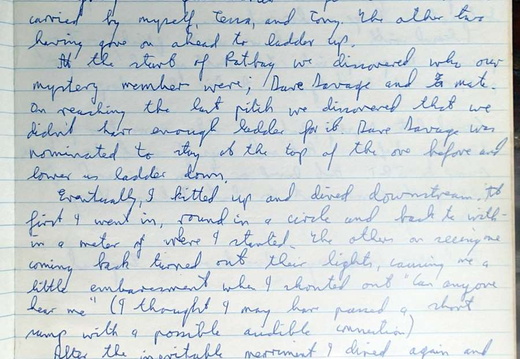 carried by myself, Tessa, and Tony. The other two
having gone on ahead to ladder up.
At the start of Ratbag we discovered who our
mystery member were; Dave Savage and mate.
On reaching the last pitch we discovered that we
didn't have enough ladder for it. Dave Savage was
nominated to stay at the top of the one before and
lower us ladder down.
Eventually, I kitted up and dived downstream. At
first I went in, round in a circle and back to with-
in a meter of where I started. The others on seeing me
coming back turned out their lights, causing me a
little embarassment when I shouted out "Can anyone
hear me" (I thought I may have passed a short
sump with a possible audible connection)
After the inevitable merriment I dived again and